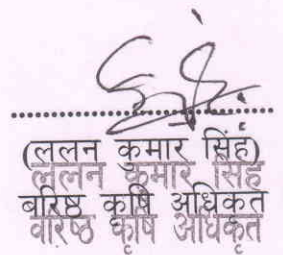 (ललन कुमार सिंह)
ललन कुमार सिंह
बरिष्ठ कृषि अधिकृत
वरिष्ठ कृषि अधिकृत